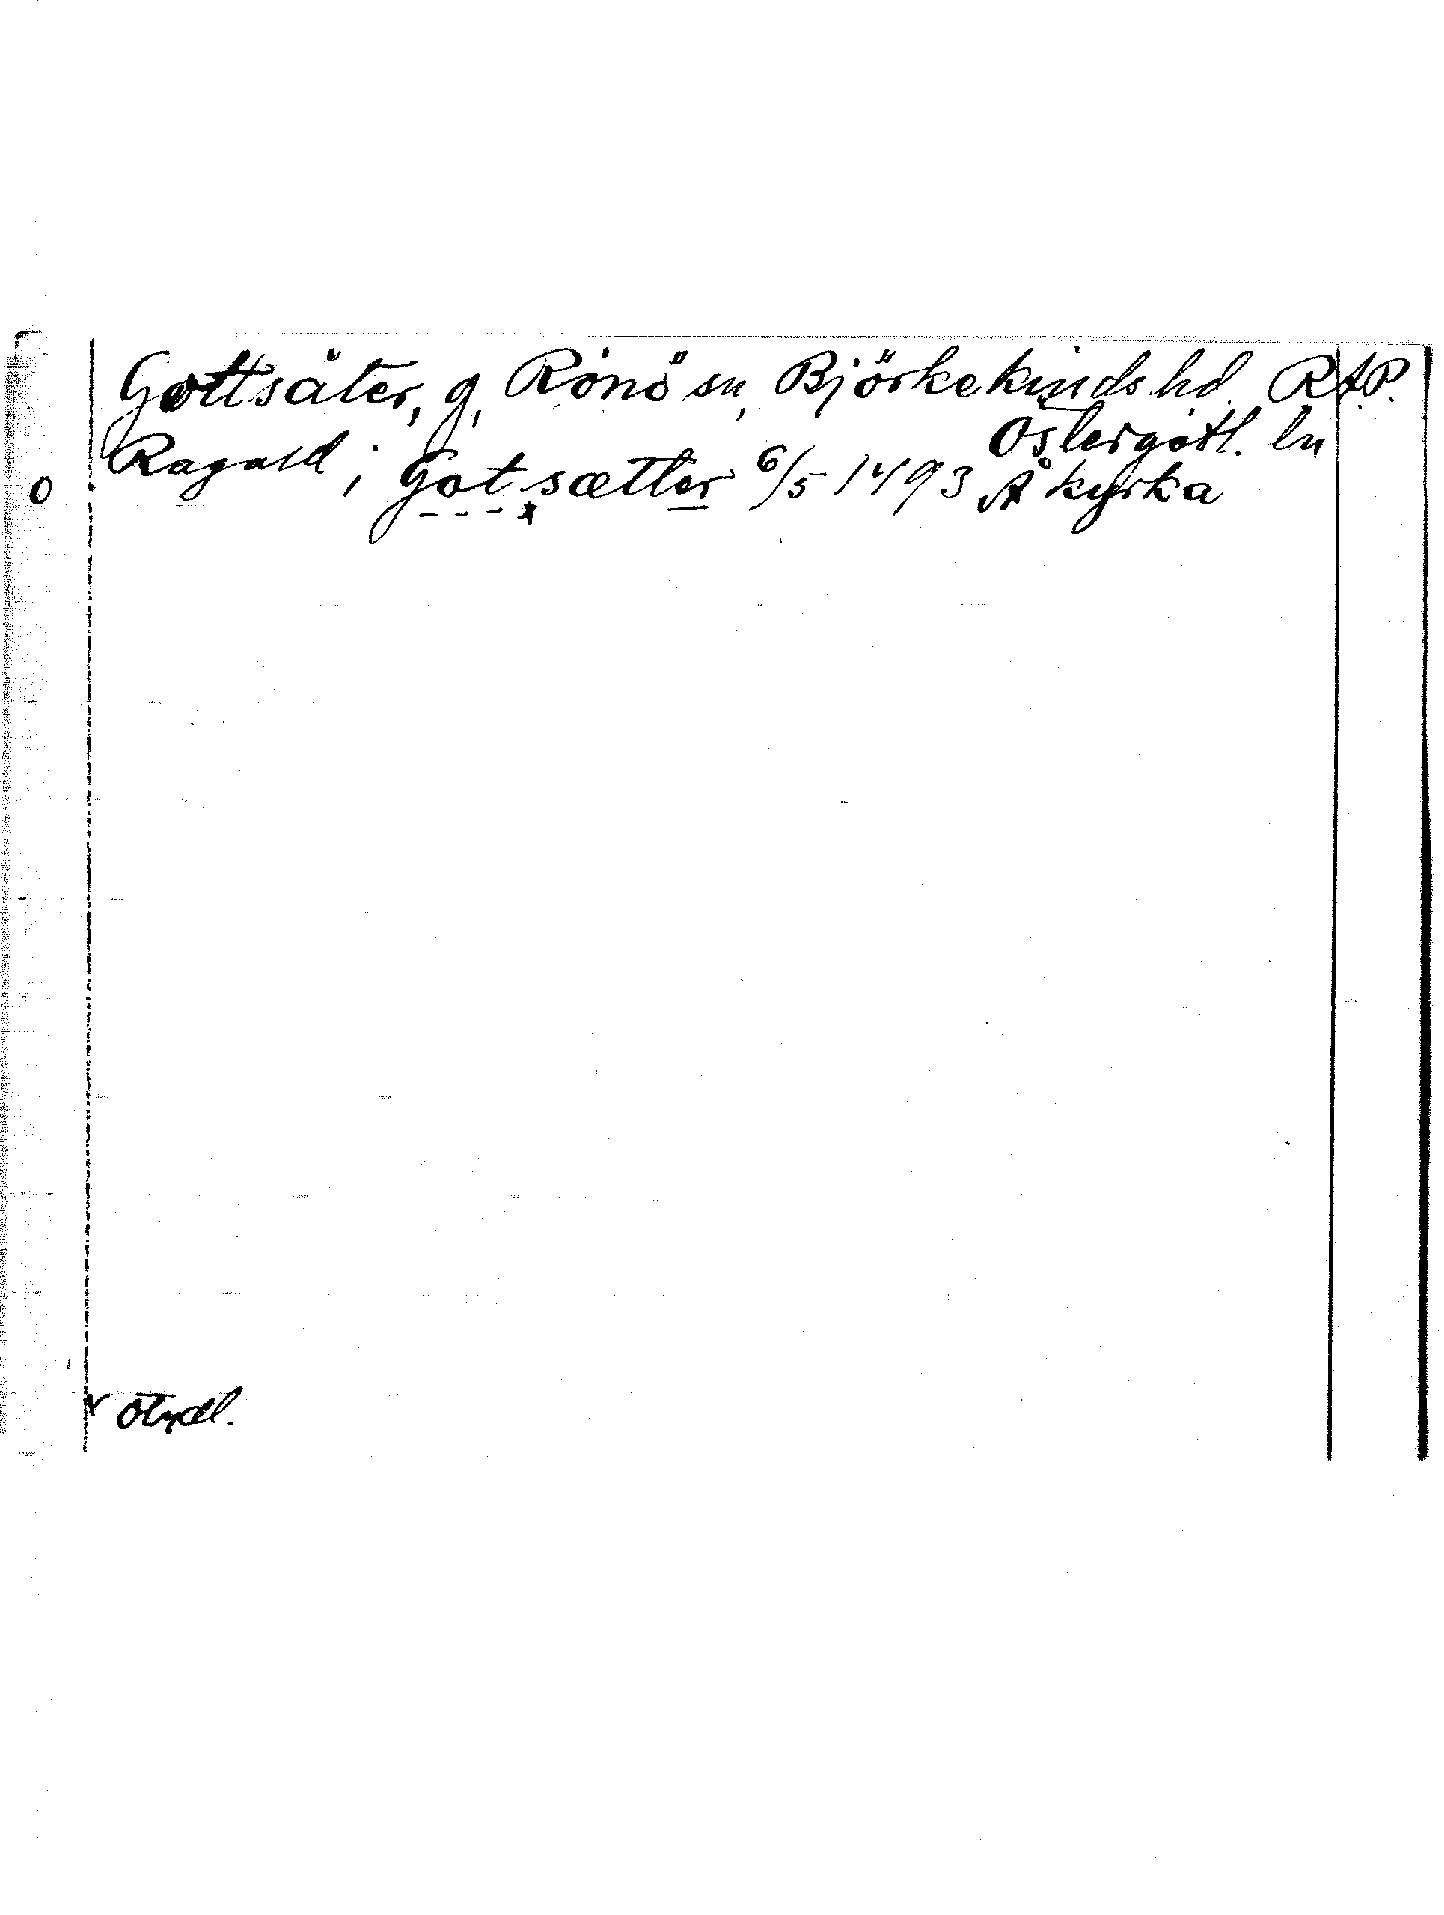 Gottsäter, g, Rönö sn, Björkekinds hd. RAP.
Östergötl. ln
Ragvald i Gotsætter 6/5 1493 Å kyrka
0
x otydl.